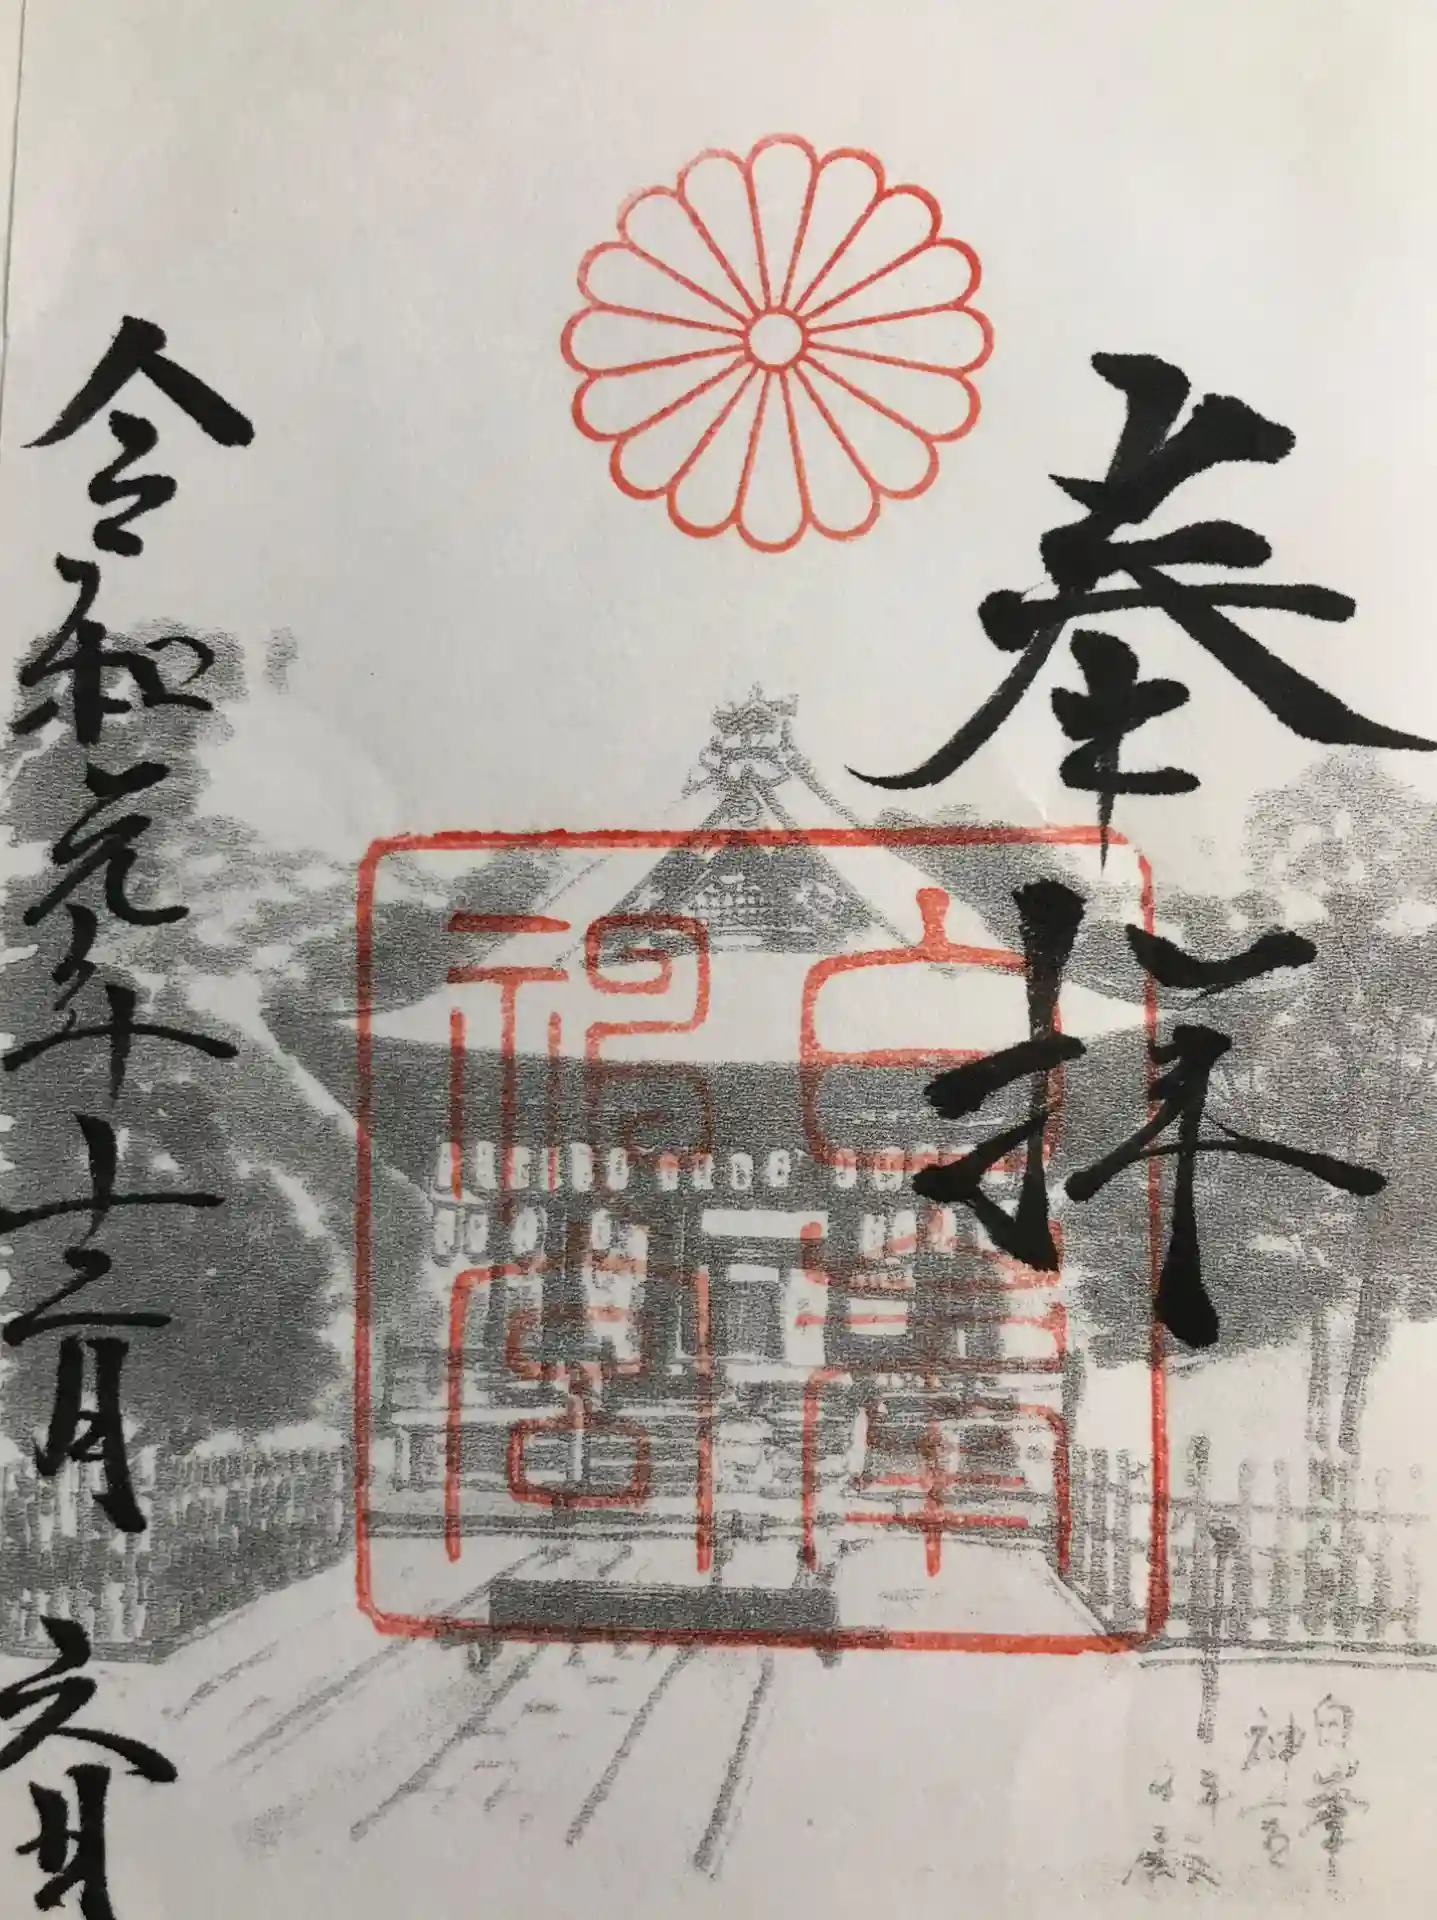 奉拝
白峯
神宮
令和元年十二月六日
白峯
神宮